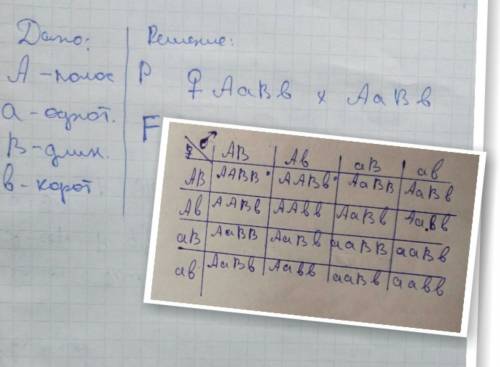 Дано:
Решение:
А - полос
а - однот.
В - длин.
в - корот.
Р ♀ АаВв х АаВв
F
♀ ♂ АВ Ав аВ ав
АВ ААВВ ААВв АаВВ АаВв
Ав ААВв ААвв АаВв Аавв
аВ АаВВ АаВв ааВВ ааВв
ав АаВв Аавв ааВв аавв